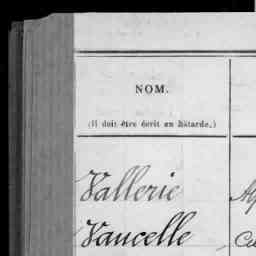 NOM.
(Il doit être écrit en Bâtarde.)
Vallerie
Vancelle